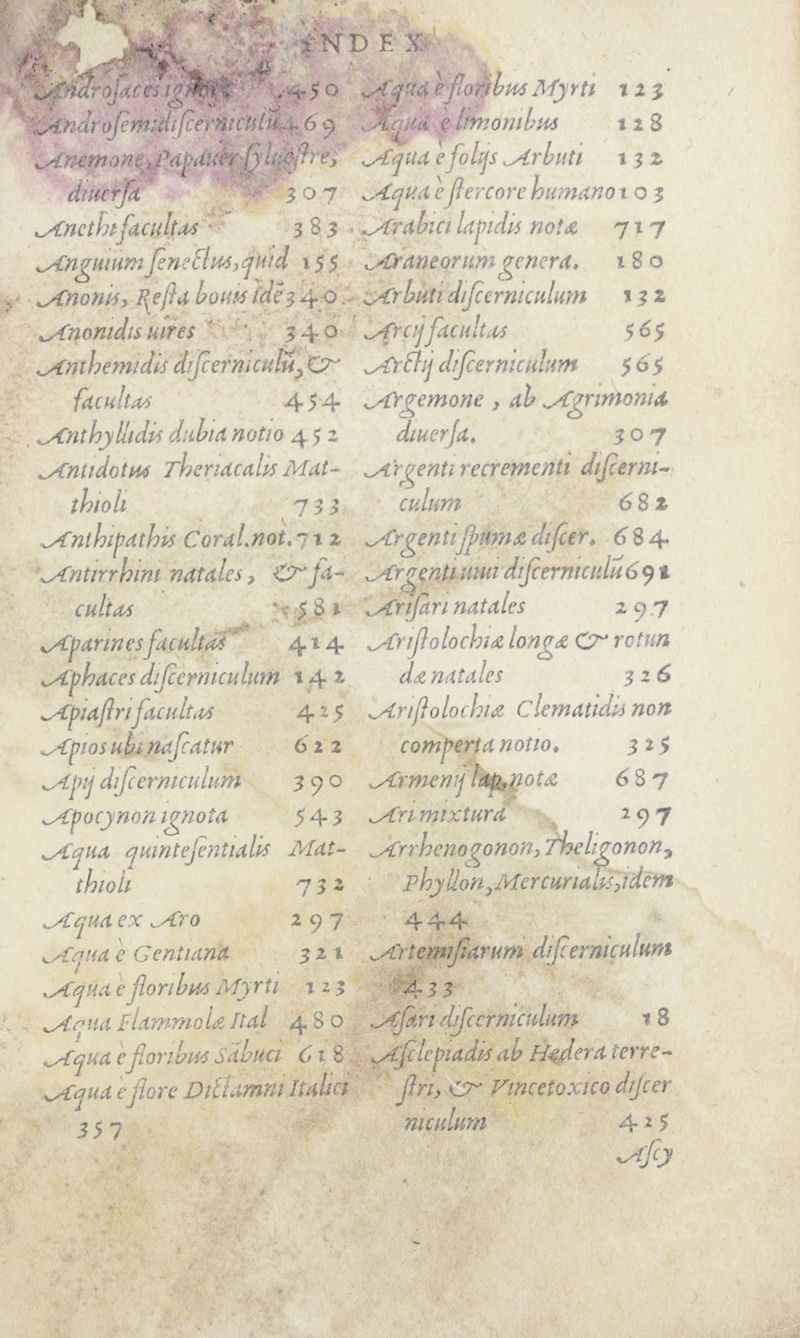 INDEX
Androſaces ignota 450
Androſemi diſcerniculū 469
Anemone, Papauer ſylueſtre,
diuerſa 307
Anethi facultas 383
Anguium ſenectus, quid 155
Anonis, Reſta bouis idē 340
Anonidis uires 340
Anthemidis diſcerniculū, &
facultas 454
Anthyllidis dubia notio 452
Antidotus Theriacalis Mat-
thioli 733
Anthipathis Coral.not. 712
Antirrhini natales, & fa-
cultas 581
Aparines facultas 414
Aphaces diſcerniculum 142
Apiaſtri facultas 425
Apios ubi naſcatur 622
Apij diſcerniculum 390
Apocynon ignota 543
Aqua quinteſentialis Mat-
thioli 732
Aqua ex Aro 297
Aqua è Gentiana 321
Aqua è floribus Myrti 123
Aqua Flammolæ Ital 480
Aqua è floribus Sābuci 618
Aqua è flore Dictamni Italici
357
Aqua è floribus Myrti 123
Aqua e limonibus 128
Aqua è folijs Arbuti 132
Aqua è ſtercore humano 103
Arabici lapidis notæ 717
Araneorum genera. 180
Arbuti diſcerniculum 132
Arcij facultas 565
Arctij diſcerniculum 565
Argemone, ab Agrimonia
diuerſa. 307
Argenti recrementi diſcerni-
culum 682
Argenti ſpumæ diſcer. 684
Argenti uiui diſcerniculū 691
Ariſari natales 297
Ariſtolochiæ longæ & rotun
dæ natales 326
Ariſtolochiæ Clematidis non
comperta notio. 325
Armenij lap, notæ 687
Ari mixtura 297
Arrhenogonon, Theligonon,
Phyllon, Mercurialis, idem
444
Artemiſiarum diſcerniculum
433
Aſari diſcerniculum 18
Aſclepiadis ab Hedera terre-
ſtri, & Vincetoxico diſcer
niculum 425
Aſcy